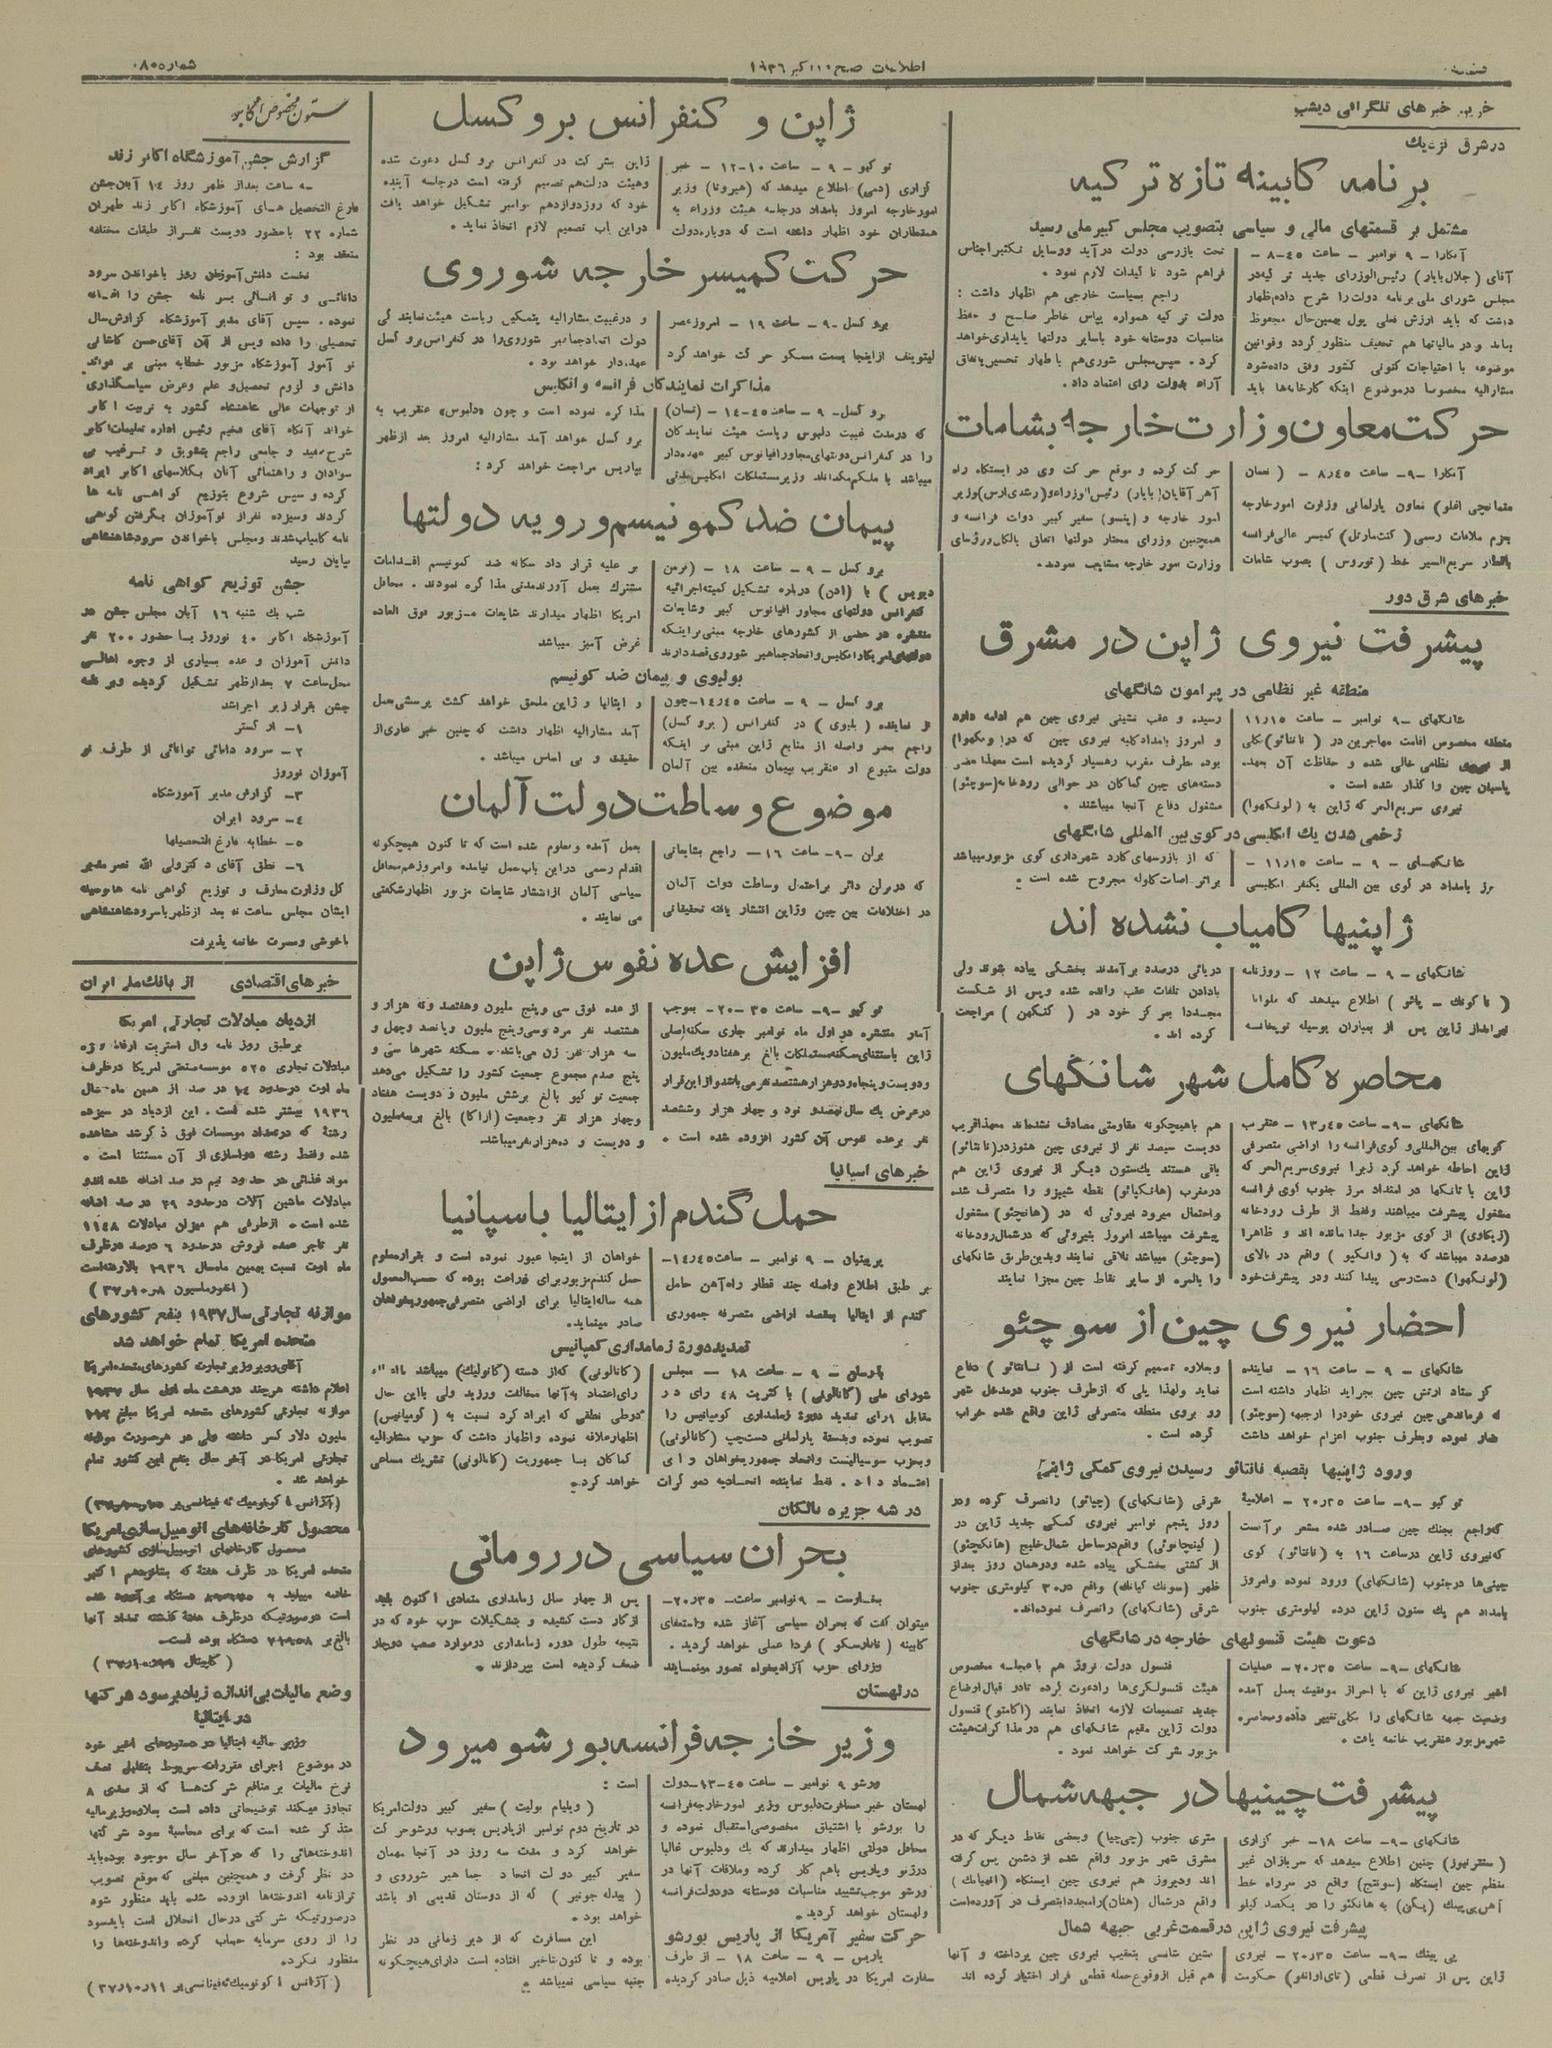 شماره ۰۸۰۵
اطلاعات صبح ۱۹۳۶
خبرهای تلگرافی دیشب
در شرق نزدیک
برنامه کابینه تازه ترکیه
مشتمل بر قسمتهای مالی و سیاسی بتصویب مجلس کبیر ملی رسید
آنکارا - ۹ نوامبر - ساعت ۸-۴۵ -
آقای (جلال بایار) رئیس‌الوزرای جدید ترکیه در
مجلس شورای ملی برنامه دولت را شرح داده اظهار
داشت که باید ارزش فعلی پول بهمین حال محفوظ
بماند و در مالیاتها هم تخفیف منظور گردد وقوانین
موضوعه با احتیاجات کنونی کشور وفق داده شود
مشارالیه مخصوصا در موضوع اینکه کارخانه‌ها باید
تحت بازرسی دولت درآید ووسایل تکثیر اجناس
فراهم شود تاکیدات لازم نمود .
راجع بسیاست خارجی هم اظهار داشت :
دولت ترکیه همواره بپاس خاطر صلح و حفظ
مناسبات دوستانه خود باسایر دولتها پایداری خواهد
کرد . سپس مجلس شوری هم با اظهار تحسین باتفاق
آراء بدولت رای اعتماد داد .
حرکت معاون وزارت خارجه بشامات
آنکارا -۹- ساعت ۸٫۴۵ - ( نعمان
معاون پارلمانی وزارت امور خارجه
بعزم ملاقات رسمی ( کنت مارتل) کمیسر عالی فرانسه
باقطار سریع‌السیر خط ( توروس ) بصوب شامات
حرکت کرده و موقع حرکت وی در ایستگاه راه
آهن آقایان( بایار) رئیس‌الوزراء و( رشدی ارس) وزیر
امور خارجه و (پنسو) سفیر کبیر دولت فرانسه و
همچنین وزرای مختار دولتها
وزارت امور خارجه مشایعت نمودند.
خبرهای شرق دور
پیشرفت نیروی ژاپن در مشرق
منطقه غیر نظامی در پیرامون شانگهای
شانگهای -۹ نوامبر - ساعت ۱۱٫۱۵
منطقه مخصوص اقامت مهاجرین در ( نانتائو) بکلی
از نظامی خالی شده و حفاظت آن بعهده
پاسبان چین واگذار شده است .
نیروی سریع‌الحرکه ژاپن به (لونکهوا)
رسیده و عقب نشینی نیروی چین هم ادامه دارد
و امروز بامداد کلیه نیروی چین که در( ونکهوا)
بوده بطرف مغرب رهسپار گردیده است معهذا
دسته‌های چین کماکان در حوالی رودخانه (سوچئو)
مشغول دفاع آنجا میباشند .
زخمی شدن یک انگلیسی در کوی بین المللی شانگهای
شانگهای - ۹ - ساعت ۱۱٫۱۵ -
روز بامداد در کوی بین المللی یکنفر انگلیسی
که از بازرسهای گارد شهرداری کوی مزبور میباشد
براثر اصابت گلوله مجروح شده است .
ژاپنیها کامیاب نشده اند
شانگهای - ۹ - ساعت ۱۲ - روزنامه
( تا کونک - پائو ) اطلاع میدهد که ملوانان
تیرانداز ژاپن پس از بمباران بوسیله توپخانه
دریائی درصدد برآمدند بخشکی پیاده شوند ولی
بادادن تلفات عقب رانده شده وپس از شکست
مجددا بمرکز خود در ( کنکهن ) مراجعت
کرده اند .
محاصره کامل شهر شانگهای
شانگهای -۹- ساعت ۱۳٫۴۵ - عنقریب
کویهای بین‌المللی و کوی فرانسه را اراضی متصرفی
ژاپن احاطه خواهد کرد زیرا نیروی سریع‌الحرکه
ژاپن با تانکها در امتداد مرز جنوب کوی فرانسه
مشغول پیشرفت میباشند وفقط از طرف رودخانه
(زیکاوی) از کوی مزبور جدا مانده اند و ظاهرا
درصدد میباشد که به (وانکپو) واقع در بالای
(لونکهوا) دسترسی پیدا کنند ودر پیشرفت خود
هم باهیچگونه مقاومتی مصادف نشده‌اند معهذا قریب
دویست سیصد نفر از نیروی چین هنوز در( نانتائو)
باقی هستند یک ستون دیگر از نیروی ژاپن هم
درمغرب (هانکیائو) نقطه شیپزو را متصرف شده
واحتمال میرود نیروئی که در (هانچئو) مشغول
پیشرفت میباشد امروز بنیروئی که در شمال رودخانه
(سوچئو) میباشد تلاقی نمایند وبدین طریق شانگهای
را بالمره از سایر نقاط چین مجزا نمایند
احضار نیروی چین از سوچئو
شانگهای - ۹ - ساعت ۱۶ - نماینده
کل ستاد ارتش چین بجراید اظهار داشته است
که فرماندهی چین نیروی خودرا ازجبهه (سوچئو)
احضار نموده وبطرف جنوب اعزام خواهد داشت
وبعلاوه تصمیم گرفته است از ( نانتائو ) دفاع
نماید ولهذا پلی که ازطرف جنوب درمدخل شهر
رو بروی منطقه متصرفی ژاپن واقع شده خراب
کرده است .
ورود ژاپنیها بقصبه نانتائو رسیدن نیروی کمکی ژاپن
توکیو -۹- ساعت ۲۰٫۳۵ - اعلامیهٔ
که راجع بجنک چین صادر شده مشعر برآنست
که نیروی ژاپن درساعت ۱۶ به (نانتائو) کوی
چینی‌ها درجنوب (شانگهای) ورود نموده وامروز
بامداد هم یک ستون ژاپن درده کیلومتری جنوب
شرقی (شانگهای) (چیائو) را تصرف کرده ودر
روز پنجم نوامبر نیروی کمکی جدید ژاپن در
( کینچاموئی) واقع درساحل شمال خلیج (هانکچئو)
از کشتی بخشکی پیاده شده ودرهمان روز بعداز
ظهر (سونک کیانک) واقع در۳۰ کیلومتری جنوب
شرقی (شانگهای) راتصرف نموده‌اند.
دعوت هیئت قنسولهای خارجه درشانگهای
شانگهای -۹- ساعت ۲۰٫۳۵ - عملیات
اخیر نیروی ژاپن که با احراز موفقیت بعمل آمده
وضعیت جبهه شانگهای را بکلی تغییر داده ومحاصره
شهر مزبور عنقریب خاتمه یافت .
قنسول دولت نروژ هم باعجله مخصوص
هیئت قنسولگری‌ها رادعوت کرده تادر قبال اوضاع
جدید تصمیمات لازمه اتخاذ نمایند (اکامتو) قنسول
دولت ژاپن مقیم شانگهای هم در مذاکرات هیئت
مزبور شرکت خواهد نمود .
پیشرفت چینیها در جبهه شمال
شانگهای -۹- ساعت ۱۸- خبر گزاری
( سنترنیوز) چنین اطلاع میدهد که سربازان غیر
منظم چین ایستگاه (سونتچ) واقع در سرراه خط
آهن پی‌پینک (پکن) به هانکئو را در یکصد کیلو
متری جنوب (چی‌چیا) وبعضی نقاط دیگر که در
مشرق شهر مزبور واقع شده از دشمن پس گرفته
اند ودیروز هم نیروی چین ایستگاه
واقع درشمال (هنان) رامجددا بتصرف در آورده‌است
پیشرفت نیروی ژاپن درقسمت غربی جبهه شمال
پی پینک -۹- ساعت ۲۰٫۳۵ - نیروی
ژاپن پس از تصرف قطعی (تای‌اوانفو) حکومت
نشین شانسی بتعقیب نیروی چین پرداخته و آنها
هم قبل ازوقوع حمله قطعی فرار اختیار کرده اند
ژاپن و کنفرانس بروکسل
توکیو - ۹ - ساعت ۱۰-۱۲ - خبر
گزاری (دمی) اطلاع میدهد که (هیروتا) وزیر
امور خارجه امروز بامداد درجلسه هیئت وزراء به
همقطاران خود اظهار داشته است که دوباره دولت
ژاپن بشرکت در کنفرانس بروکسل دعوت شده
وهیئت دولت هم تصمیم گرفته است درجلسه آینده
خود که روز دوازدهم نوامبر تشکیل خواهد یافت
دراین باب تصمیم لازم اتخاذ نماید .
حرکت کمیسر خارجه شوروی
بروکسل -۹- ساعت ۱۹ - امروز عصر
لیتوینف ازاینجا بسمت مسکو حرکت خواهد کرد
و درغیبت مشارالیه پتمکین ریاست هیئت نمایندگی
دولت اتحاد جماهیر شوروی را در کنفرانس بروکسل
عهده‌دار خواهد بود .
مذاکرات نمایندگان فرانسه وانگلیس
بروکسل - ۹ - ساعت ۱۴-۴۵ - (تسان)
که درمدت غیبت دلبوس ریاست هیئت نمایندگان
را در کنفرانس دولتهای مجاور اقیانوس کبیر عهده‌دار
میباشد با ملکم مکدانلد وزیر مستملکات انگلیس مدتی
مذاکره نموده است و چون «دلبوس» عنقریب به
بروکسل خواهد آمد مشارالیه امروز بعد ازظهر
بپاریس مراجعت خواهد کرد :
پیمان ضد کمونیسم و رویه دولتها
بروکسل - ۹ - ساعت ۱۸ - (نرمن
دیویس ) با (ادن) درباره تشکیل کمیته اجرائیه
کنفرانس دولتهای مجاور اقیانوس کبیر وشایعات
منتشره در بعضی از کشورهای خارجه مبنی براینکه
دولتهای امریکا وانگلیس واتحاد جماهیر شوروی قصد دارند
بر علیه قرار داد سه‌گانه ضد کمونیسم اقدامات
مشترک بعمل آورند مدتی مذاکره نمودند . محافل
امریکا اظهار میدارند شایعات مزبور فوق العاده
غرض آمیز میباشد
بولیوی و پیمان ضد کمونیسم
بروکسل - ۹ - ساعت ۱۴٫۴۵-چون
از نماینده ( بلیوی ) در کنفرانس ( بروکسل)
راجع بخبر واصله از منابع ژاپن مبنی بر اینکه
دولت متبوع او عنقریب بپیمان منعقده بین آلمان
و ایتالیا و ژاپن ملحق خواهد گشت پرسشی بعمل
آمد مشارالیه اظهار داشت که چنین خبر عاری از
حقیقت و بی اساس میباشد .
موضوع وساطت دولت آلمان
برلن -۹- ساعت ۱۶- راجع بشایعاتی
که دربرلن دائر براحتمال وساطت دولت آلمان
در اختلافات بین چین وژاپن انتشار یافته تحقیقاتی
بعمل آمده ومعلوم شده است که تا کنون هیچگونه
اقدام رسمی دراین باب بعمل نیامده وامروزهم محافل
سیاسی آلمان ازانتشار شایعات مزبور اظهار شگفتی
می نمایند .
افزایش عده نفوس ژاپن
توکیو -۹- ساعت ۲۰-۳۵ - بموجب
آمار منتشره در اول ماه نوامبر جاری سکنه اصلی
ژاپن باستثنای سکنه مستملکات بالغ بر هفتاد ویک ملیون
ودویست وپنجاه ودوهزار هشتصد نفر می‌باشد واز این قرار
درعرض یک سال نهصد و نود و چهار هزار وششصد
نفر برعده نفوس آن کشور افزوده شده است .
از عده فوق سی وپنج ملیون وهفتصد ونه هزار و
هشتصد نفر مرد وسی وپنج ملیون وپانصد وچهل و
سه هزار نفر زن می‌باشد . سکنه شهرها سی و
پنج صدم مجموع جمعیت کشور را تشکیل می‌دهد
جمعیت توکیو بالغ برشش ملیون و دویست هفتاد
وچهار هزار نفر وجمعیت (ازاکا) بالغ برسه ملیون
و دویست و ده هزار نفر میباشد.
خبرهای اسپانیا
حمل گندم از ایتالیا باسپانیا
پرپینیان - ۹ نوامبر - ساعت ۱۴٫۴۵-
بر طبق اطلاع واصله چند قطار راه‌آهن حامل
گندم از ایتالیا بمقصد اراضی متصرفه جمهوری
خواهان از اینجا عبور نموده است و بقرار معلوم
حمل گندم مزبور برای زراعت بوده که حسب‌المعمول
همه ساله ایتالیا برای اراضی متصرفی جمهوریخواهان
صادر مینماید.
تمدید دورهٔ زمامداری کمپانیس
بارسلن - ۹ - ساعت ۱۸ - مجلس
شورای ملی (کاتالونی) با کثریت ۴۸ رای در
مقابل ۱ رای تمدید دورهٔ زمامداری کومپانیس را
تصویب نموده ودستهٔ پارلمانی دست‌چپ (کاتالونی)
وحزب سوسیالیست واتحاد جمهوریخواهان رای
اعتماد داد. فقط نماینده اتحادیه دموکرات
(کاتالونی) که‌از دسته (کاتولیک) میباشد
رای اعتماد به‌آنها مخالفت ورزید ولی بااین حال
درطی نطقی که ایراد کرد نسبت به ( کومپانیس)
اظهارعلاقه نموده واظهار داشت که حزب مشارالیه
کماکان با جمهوریت (کاتالونی) تشریک مساعی
خواهد کرد.
در شبه جزیره بالکان
بحران سیاسی در رومانی
بخارست - ۹ نوامبر - ساعت ۲۰٫۳۵-
میتوان گفت که بحران سیاسی آغاز شده واستعفای
کابینه ( تاتارسکو ) فردا عملی خواهد گردید .
وزرای حزب آزادیخواه تصور مینمایند
پس از چهار سال زمامداری متمادی اکنون باید
ازکار دست کشیده و بتشکیلات حزب خود که در
نتیجه طول دوره زمامداری درموارد صعب دوچار
ضعف گردیده است بپردازند .
در لهستان
وزیر خارجه فرانسه بورشو میرود
ورشو ۹ نوامبر - ساعت ۱۳-۴۵-دولت
لهستان خبر مسافرت دلبوس وزیر امور خارجه فرانسه
را بورشو با اشتیاق مخصوصی استقبال نموده و
محافل دولتی اظهار میدارند که بک ودلبوس غالبا
درژنو وپاریس باهم کار کرده وملاقات آنها در
ورشو موجب تشیید مناسبات دوستانه دودولت فرانسه
ولهستان خواهد گردید.
حرکت سفیر آمریکا از پاریس بورشو
پاریس - ۹ - ساعت ۱۸ - از طرف
سفارت امریکا در پاریس اعلامیه ذیل صادر گردیده
است :
( ویلیام بولیت ) سفیر کبیر دولت امریکا
در تاریخ دوم نوامبر ازپاریس بصوب ورشو حرکت
خواهد کرد و مدت سه روز در آنجا مهمان
سفیر کبیر دولت اتحاد جماهیر شوروی و
( بیدله جونیر ) که از دوستان قدیمی او باشد
خواهد بود .
این مسافرت که از دیر زمانی در نظر
بوده و تا کنون بتاخیر افتاده است دارای هیچگونه
جنبه سیاسی نمیباشد .
ستون مخصوص اکابر
گزارش جشن آموزشگاه اکابر زند
سه ساعت بعداز ظهر روز ۱۴ آبان جشن
فارغ التحصیل های آموزشگاه اکابر زند طهران
شماره ۲۲ باحضور دویست نفر از طبقات مختلفه
منعقد بود :
نخست دانش آموزان روز باخواندن سرود
دانائی و توانائی برنامه جشن را افتتاح
نموده . سپس آقای مدیر آموزشگاه گزارش سال
تحصیلی را داده وپس از آن آقای حسن کاشانی
نو آموز آموزشگاه مزبور خطابه مبنی بر فوائد
دانش و لزوم تحصیل و علم وعرض سپاسگذاری
از توجهات عالی شاهنشاه کشور به تربیت اکابر
خواند آنگاه آقای فخیم رئیس اداره تعلیمات اکابر
شرح مفید و جامعی راجع بتشویق و ترغیب بی
سوادان و راهنمائی آنان بکلاسهای اکابر ایراد
کرده و سپس شروع بتوزیع گواهی نامه ها
کردند وسیزده نفر از نوآموزان بگرفتن گواهی
نامه کامیاب شدند ومجلس باخواندن سرود شاهنشاهی
بپایان رسید
جشن توزیع گواهی نامه
شب یک شنبه ۱۶ آبان مجلس جشن در
آموزشگاه اکابر ۴۰ نوروز با حضور ۲۰۰ نفر
دانش آموزان و عده بسیاری از وجوه اهالی
محل ساعت ۷ بعدازظهر تشکیل گردیده وبرنامه
جشن بقرار زیر اجراشد
۱- ارکستر
۲- سرود دانائی توانائی از طرف نو
آموزان نوروز
۳- گزارش مدیر آموزشگاه
۴- سرود ایران
۵- خطابه فارغ التحصیلها
۶- نطق آقای دکتر ولی الله نصر مدیر
کل وزارت معارف و توزیع گواهی نامه ها بوسیله
ایشان مجلس ساعت نه بعد ازظهر باسرود شاهنشاهی
باخوشی ومسرت خاتمه پذیرفت
خبرهای اقتصادی از بانک ملی ایران
ازدیاد مبادلات تجارتی امریکا
برطبق روز نامه وال استریت
مبادلات تجاری ۵۲۵ موسسه صنعتی امریکا درظرف
ماه اوت درحدود ۱۴ در صد از همین ماه سال
۱۹۳۶ بیشتر شده است . این ازدیاد در سیزده
رشته که درتعداد موسسات فوق ذکر شد مشاهده
شده وفقط رشته دواسازی از آن مستثنا است .
مواد غذائی در حدود نیم در صد اضافه شده اند
مبادلات ماشین آلات درحدود ۲۹ در صد اضافه
شده است . ازطرفی هم میزان مبادلات ۱۱۴۸
نفر تاجر عمده فروش درحدود ۶ درصد درظرف
ماه اوت نسبت بهمین ماه سال ۱۹۳۶ بالا رفته است
( انفورماسیون ۸ر۱۰ر۳۷ )
موازنه تجارتی سال ۱۹۳۷ بنفع کشورهای
متحده امریکا تمام خواهد شد
آقای روپر وزیر تجارت کشورهای متحده امریکا
اعلام داشته هرچند درهشت ماه اول سال ۱۹۳۷
موازنه تجارتی کشورهای متحده امریکا مبلغ
ملیون دلار کسر داشته ولی در هرصورت موازنه
تجارتی امریکا در آخر سال بنفع این کشور تمام
خواهد شد .
محصول کارخانه‌های اتومبیل سازی امریکا
محصول کارخانهای اتومبیل سازی کشورهای
متحده امریکا در ظرف هفتهٔ که بپانزدهم اکتبر
خاتمه مییابد به دستگاه برآورد شده
است درصورتیکه درظرف هفتهٔ گذشته تعداد آنها
بالغ بر ۷۱۹۵۸ دستگاه بوده است.
وضع مالیات بی‌اندازه زیاد بر سود شرکتها
در ایتالیا
وزیر مالیه ایتالیا در دستورهای اخیر خود
در موضوع اجرای مقررات مربوط بتقلیل نصف
نرخ مالیات بر منافع شرکت‌ها که از صدی ۸
تجاوز میکند توضیحاتی داده است بعلاوه وزیر مالیه
متذکر شده است که برای محاسبهٔ سود شرکتها
اندوخته‌هائی را که در آخر سال موجود بوده باید
در نظر گرفت و همچنین مبلغی که موقع تصویب
ترازنامه اندوخته‌ها افزوده شده باید منظور شود
درصورتیکه شرکتی درحال انحلال است باید سود
را از روی سرمایه حساب کرده واندوخته‌ها را
منظور نکرد.
( آژانس اکونومیک ئه فینانسی‌یر ۱۱ر۱۰ر۳۷ )